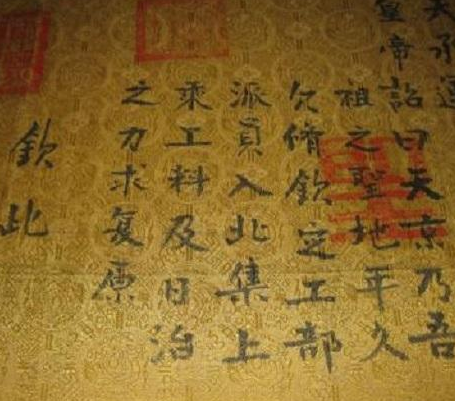 天承運
皇帝詔曰天京乃吾
祖之聖地年久
欠脩欽定工部
派員入北集上
乘工料及日治
之力求复原
欽此